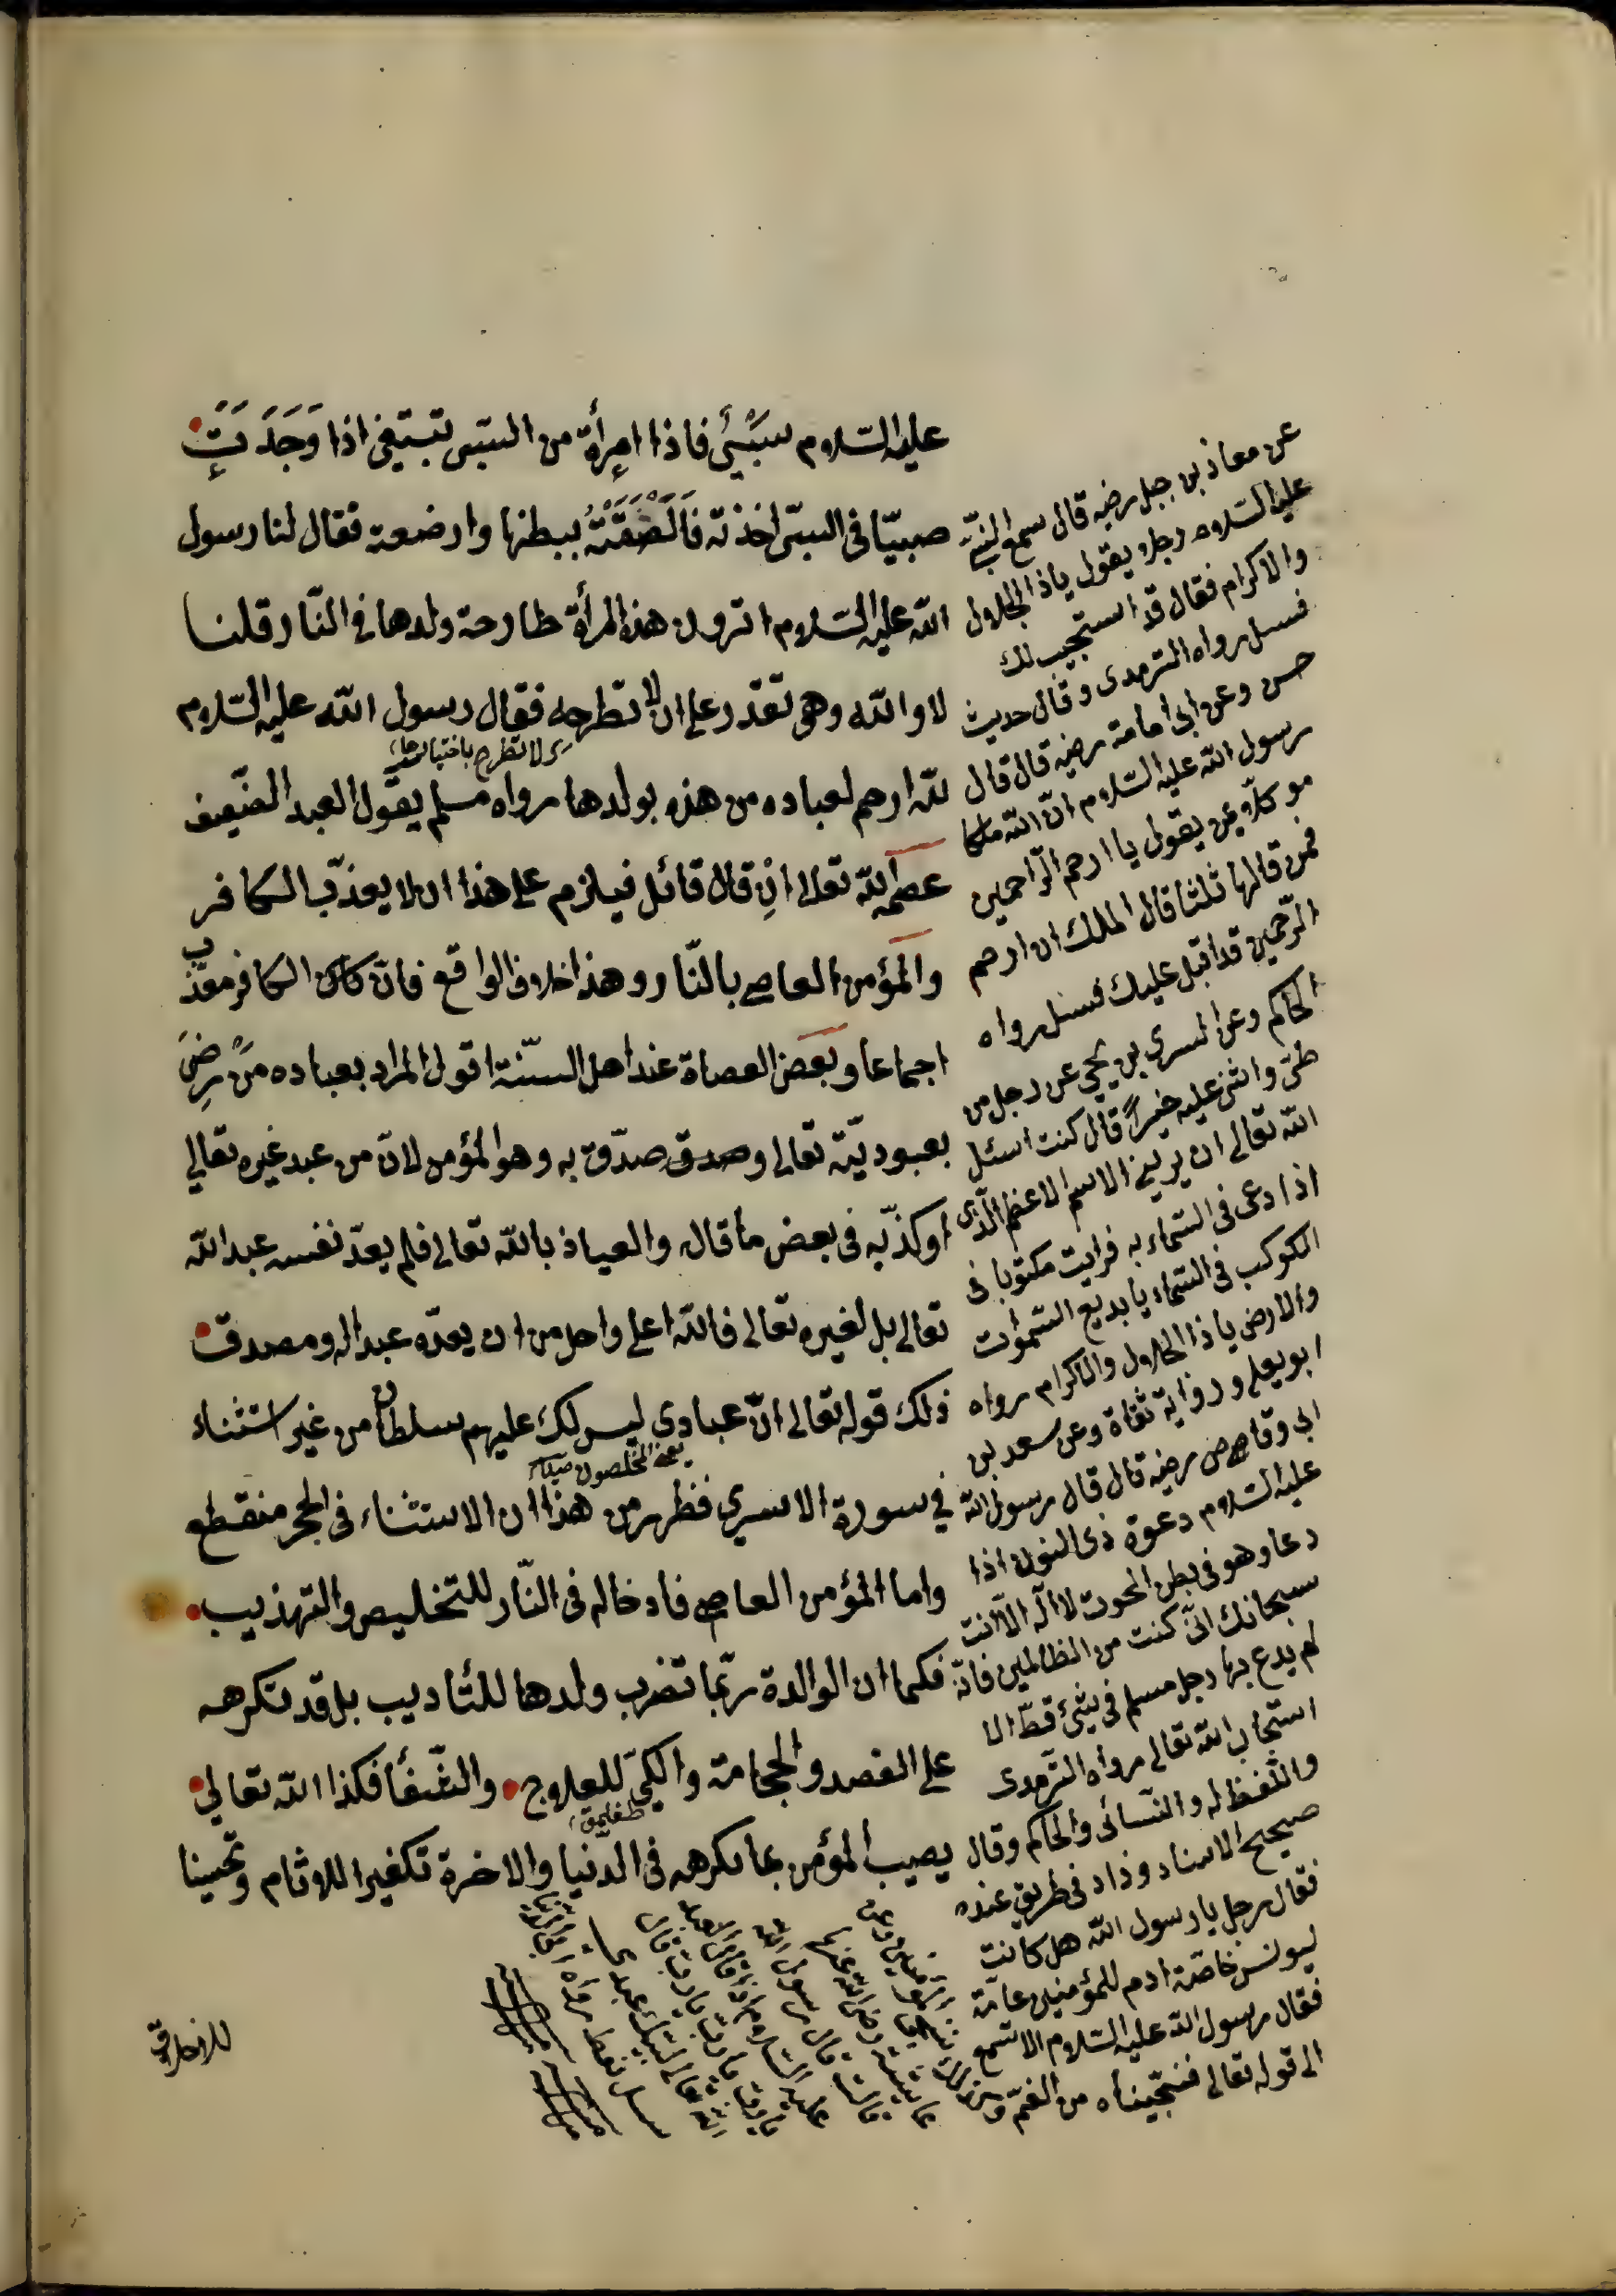 عليه السلام سَبْيٌ فاذا امرأة من السبي تبتغي اذا وَجَدَتْ
صبيّا في السبي اخذته فَاَلْصَقَتْهُ ببطنها وارضعته فقال لنا رسول
الله عليه السلام اترون هذه المرأة طارحة ولدها في النّار قلنا
لا والله وهي تقدر على ان لا تطرحه فقال رسول الله عليه السّلام
اى لا تطرح باختيارها
لله ارحم لعباده من هذه بولدها رواه مسلم يقول العبد الضّعيف
عصمه الله تعالى انْ قال قائل فيلزم على هذا ان لا يعذّب الكافر
والمؤمن العاصي بالنّار وهذا خلاف الواقع فانّ كان الكافر معذّب
اجماعا وبعض العصاة عند اهل السّنّة اقول المراد بعباده مَنْ رضىَ
بعبوديّته تعالى وصدق صدّق به وهو المؤمن لانّ من عبد غيره تعالى
او كذّبه في بعض ما قال والعياذ بالله تعالى فلم يعدّ نفسه عبد الله
تعالى بل لغيره تعالى فالله اعلى واجل من ان يعدّه عبدا له ومصدق
ذلك قوله تعالى انّ عبادى ليس لك عليهم سلطان من غير استثناء
يعني المخلصون
في سورة الاسرى فظهر من هذا ان الاستثناء في الحجر منقطع
واما المؤمن العاصي فادخاله في النّار للتخليص والتهذيب
فكما ان الوالدة ربّما تضرب ولدها للتأديب بل قد تكرهه
على الفصد والحجامة والكيّ للعلاج والشّفأ فكذا الله تعالى
يصيب المؤمن بما يكرهه في الدّنيا والاخرة تكفيرا للاثام وتحيينا
للاخلاق
عن معاذ بن جبل رضيه قال سمع النبيّ
عليه السلام رجلا يقول ياذا الجلال
والاكرام فقال قد استجيب لك
فسل رواه الترمدى وقال حديث
حسن وعن ابي امامة رضيه قال قال
رسول الله عليه السّلام انّ الله ملكا
موكلا بمن يقول يا ارحم الرّاحمين
فمن قالها ثلثا قال الملك ان ارحم
الرّحمين قد اقبل عليك فسل رواه
الحاكم وعن السرى بن يحيى عن رجل من
طيّ واثنى عليه خيراً قال كنت اسئل
الله تعالى ان يريني الاسم الاعظم الّذى
اذا دعى في السّماء به فرايت مكتوبا في
الكوكب في السّماء يا بديع السّموات
والارض ياذا الجلال والاكرام رواه
ابو يعلى ورواية ثقاة وعن سعد بن
ابي وقاص رضيه قال قال رسول الله
عليه السلام دعوة ذى النون اذا
دعا وهو في بطن الحوت لا اله الّا انت
سبحانك انّى كنت من الظالمين فانّه
لم يدع بها رجل مسلم في شيئ قطّ الا
استجاب الله تعالى رواه الترّمدى
واللفظ له والنّسائي والحاكم وقال
صحيح الاسناد وزاد في طريق عنده
فقال رجل يا رسول الله هل كانت
ليونس خاصّة ام للمؤمنين عامّة
فقال رسول الله عليه السّلام الا تسمع
الى قوله تعالى فنجّيناه من الغمّ وكذلك
ننجي المؤمنين وعن
عائشة رضي الله عنها
قالت قال رسول الله
عليه السّلام اذا قال العبد
يا ربّ يا ربّ يا ربّ قال
الله تعالى لبّيك عبدى
سل تعط رواه